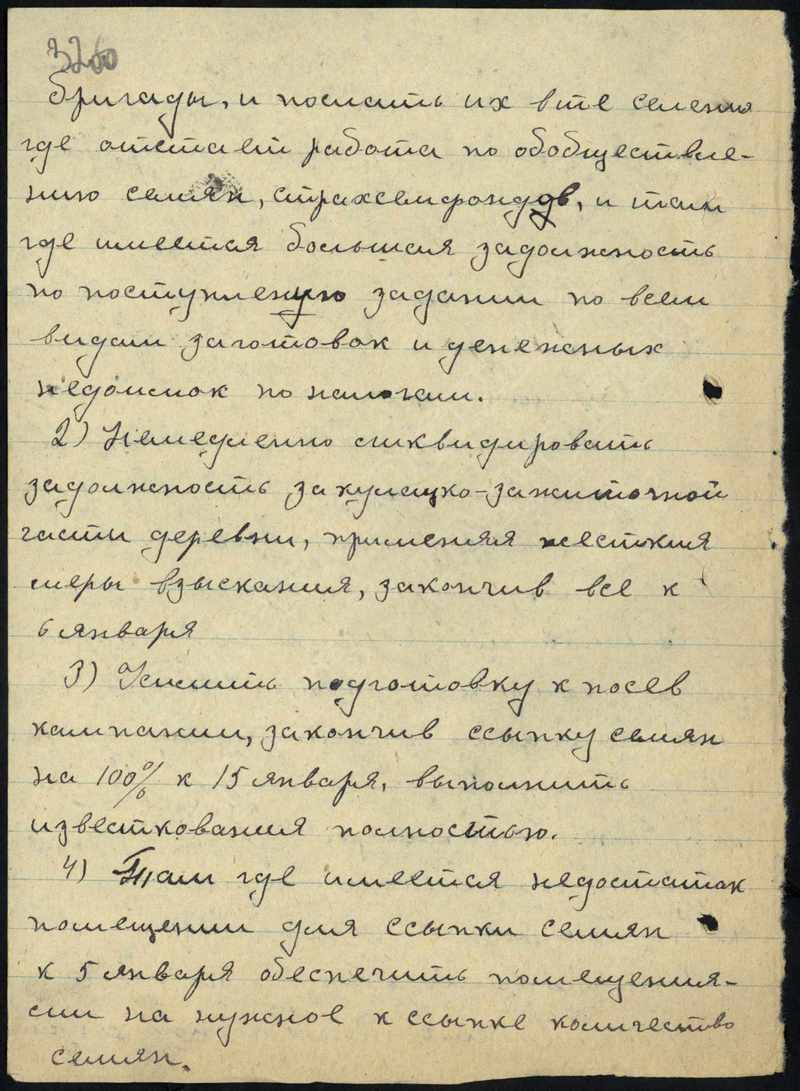 бригады, и послать их в те селения
где отстает работа по обобществле-
нию семян, страхсемфондов, и там
где имеется большая задолжность
по поступлению задании по всем
видам заготовок и денежных
недоимок по налогам.
2) Немедленно ликвидировать
задолжность за кулацко-зажиточной
части деревни, применяя жесткия
меры взыскания, закончив все к
6 января
3) Усилить подготовку к посев
кампании, закончив ссыпку семян
на 100% к 15 января, выполнить
известкования полностью.
4) Там где имеется недостаток
помещении для ссыпки семян
к 5 января обеспечить помещения-
ми на нужное к ссыпке количество
семян.